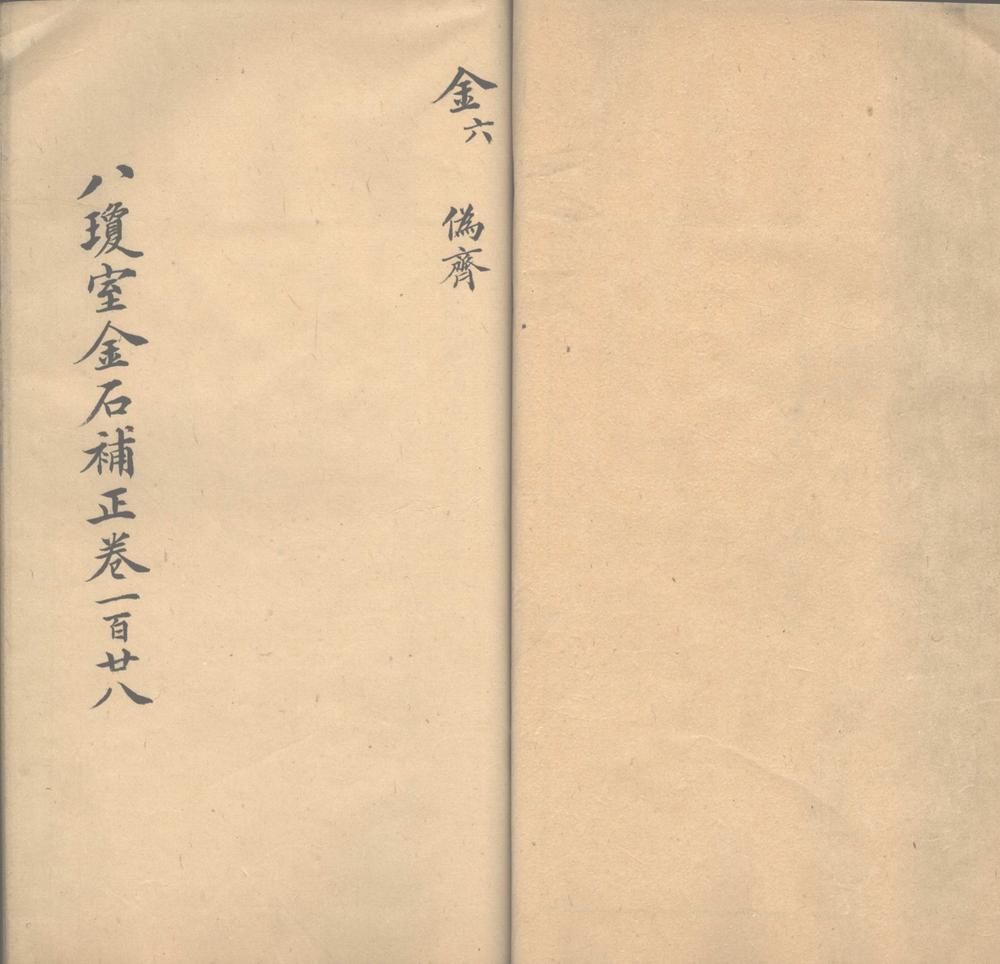 金六 偽齊
八瓊室金石補正卷一百廿八